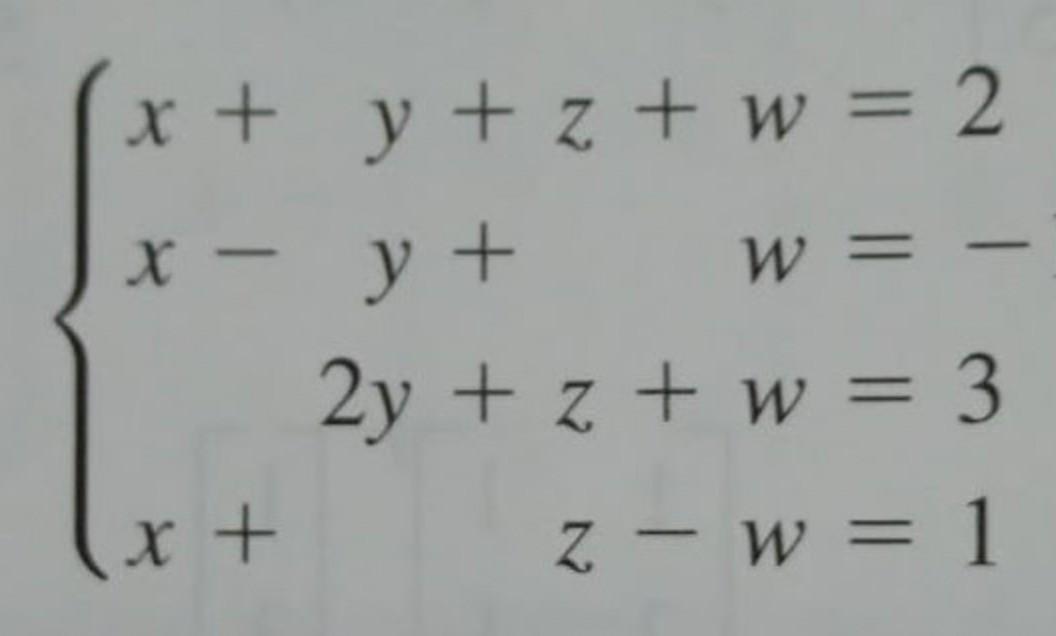 x + y + z + w = 2
x − y + w = −
2y + z + w = 3
x + z − w = 1